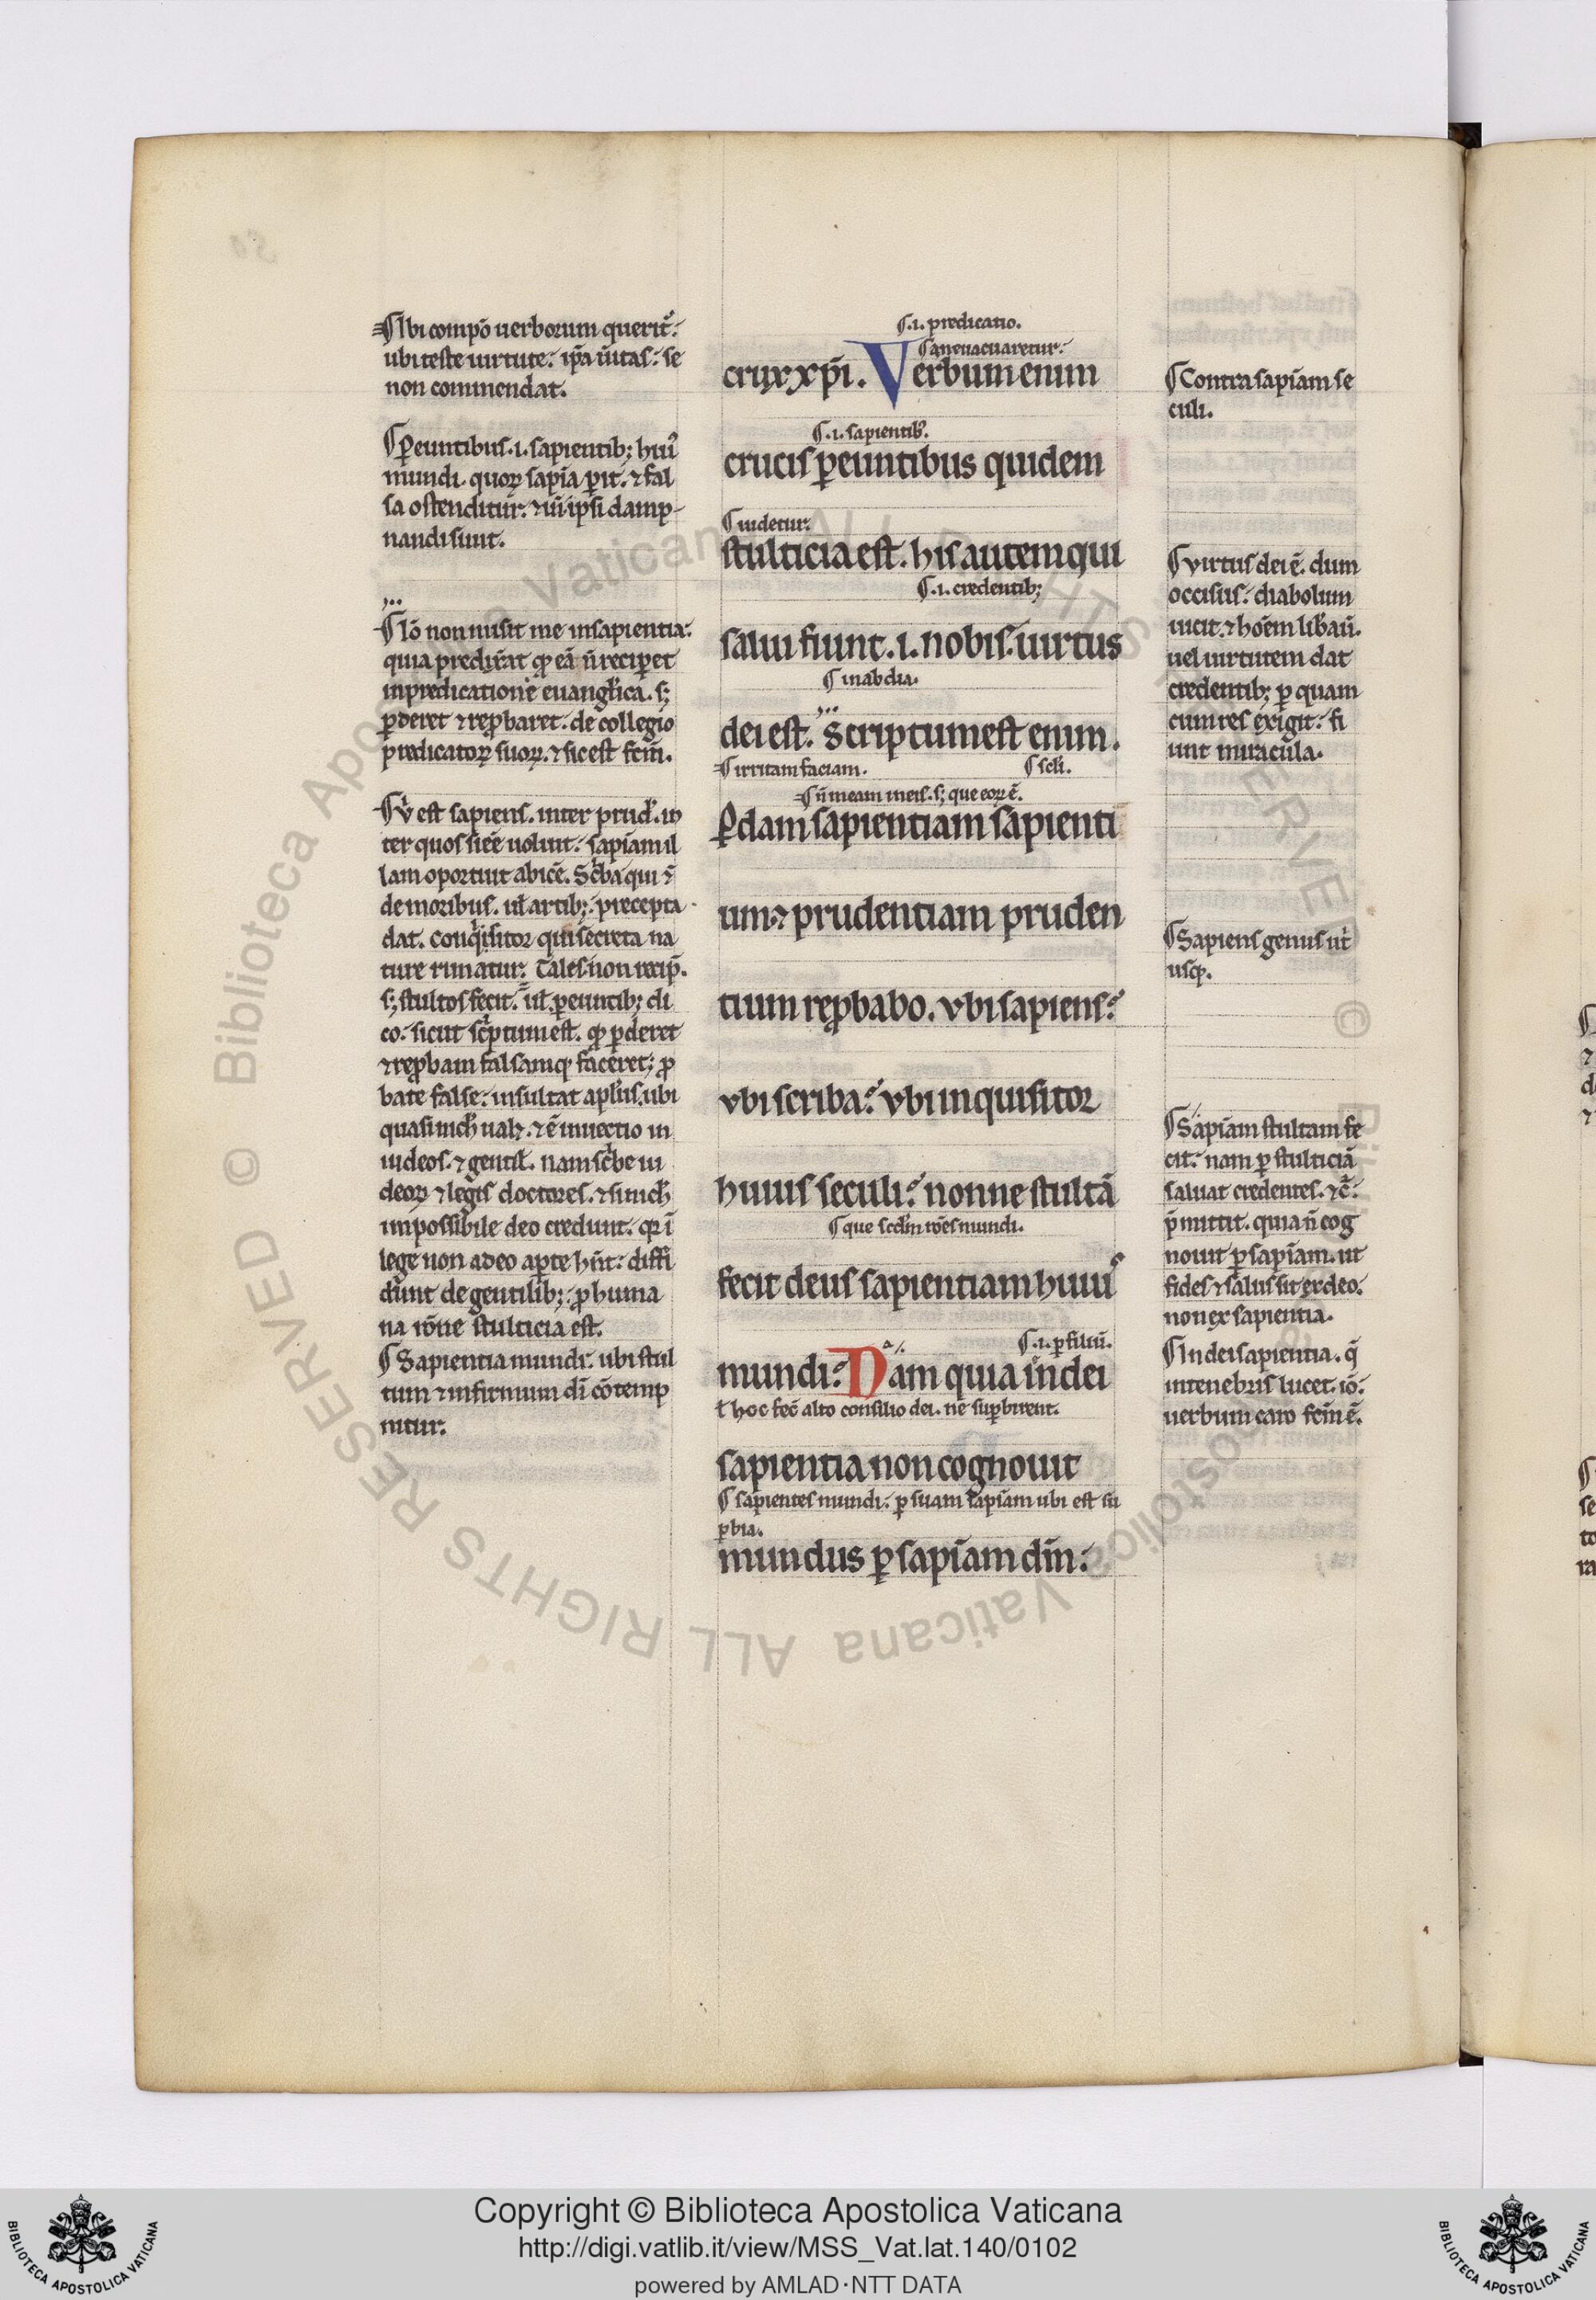 ¶ Ibi compõ uerborum querit᷑.
ubi teste uirtute. ip̃a ũitas. se
non commendat.
¶ ꝑeuntibus .i. sapientib; hui᷒
mundi. quoꝝ sapĩa ꝑit. ⁊ fal
sa ostenditur. ⁊ ũ ipsi damp-
nandi sunt.
¶ Iõ non misit me in sapientia.
quia predix̾at ꝙ eã ñ reciꝑet
in predicatione euangl̃ica. s;
ꝑderet ⁊ reꝓbaret. de collegio
predicatoꝝ suoꝝ. ⁊ sic est fcm̃.
est sapiens. inter prud̾. in
ter quos siẽe uolunt. sapĩam il
lam oportuit abicẽ. Sc̾ba qui
de moribus. ul̃ artib; precepta
dat. Conq̾isitor qui secreta na
ture rimatur. Tales non recip̃.
s; stultos fecit. ul̃ ꝑeuntib; di
co. sicut sc̾ptum est. ꝙ ꝑderet
⁊ reꝓbam falsamq; faceret; ꝓ
bate false. insultat apl̃us. ubi
quasi nich̾ ualꝫ. ⁊ ẽ inuectio in
iudeos. ⁊ gentil̃. nam sc̾be iu
deoꝝ ⁊ legis doctores. ⁊ si nich̾
impossibile deo credunt. qꝛ ĩ
lege non adeo aꝑte hñt. diffi
dunt de gentilib; ꝓ huma
na rõne stulticia est.
¶ Sapientia mundi. ubi stul
tum ⁊ infirmum dĩ cõtemp
nitur.
¶ .i. predicatio.
¶ an euacuaretur.
crux xp̃i. Verbum enim
¶ .i. sapientib᷒.
crucis ꝑeuntibus quidem
¶ uidetur.
stulticia est. his autem qui
¶ .i. credentib;
salui fiunt .i. nobis. uirtus
¶ in abdia.
dei est. Scriptum est enim.
¶ irritam faciam. ¶ scil̃.
¶ ñ meam in eis. s; que eoꝝ ẽ.
ꝑdam sapientiam sapienti
um ⁊ prudentiam pruden
tium reꝓbabo. vbi sapiens.
vbi scriba. vbi inquisitor
huius seculi. nonne stultã
¶ que scdm̃ rões mundi.
fecit deus sapientiam huiu᷒
¶ .i. ꝑ filiũ.
mundi. Nam quia in dei
ł hoc fec̃ alto consilio dei. ne suꝑbirent.
sapientia non cognouit
¶ sapientes mundi. ꝑ suam sapĩam ubi est su
ꝑbia.
mundus ꝑ sapĩam dm̃.
¶ Contra sapĩam se
culi.
¶ virtus dei ẽ. dum
occisus. diabolum
uicit. ⁊ hoẽm lib̾auit.
uel uirtutem dat
credentib; ꝑ quam
cum res exigit. fi
unt miracula.
¶ Sapiens genus ut̾
usq;.
¶ Sapĩam stultam fe
cit. nam ꝑ stulticiã
saluat credentes. ⁊c̃.
p̃mittit. quia ñ cog
nouit ꝑ sapĩam. ut
fides ⁊ salus sit ex deo.
non ex sapientia.
¶ In dei sapientia. q̃
in tenebris lucet. iõ.
uerbum caro fcm̃ ẽ.
© Biblioteca Apostolica Vaticana ALL RIGHTS RESERVED
Copyright © Biblioteca Apostolica Vaticana
http://digi.vatlib.it/view/MSS_Vat.lat.140/0102
powered by AMLAD·NTT DATA
BIBLIOTECA APOSTOLICA VATICANA
BIBLIOTECA APOSTOLICA VATICANA